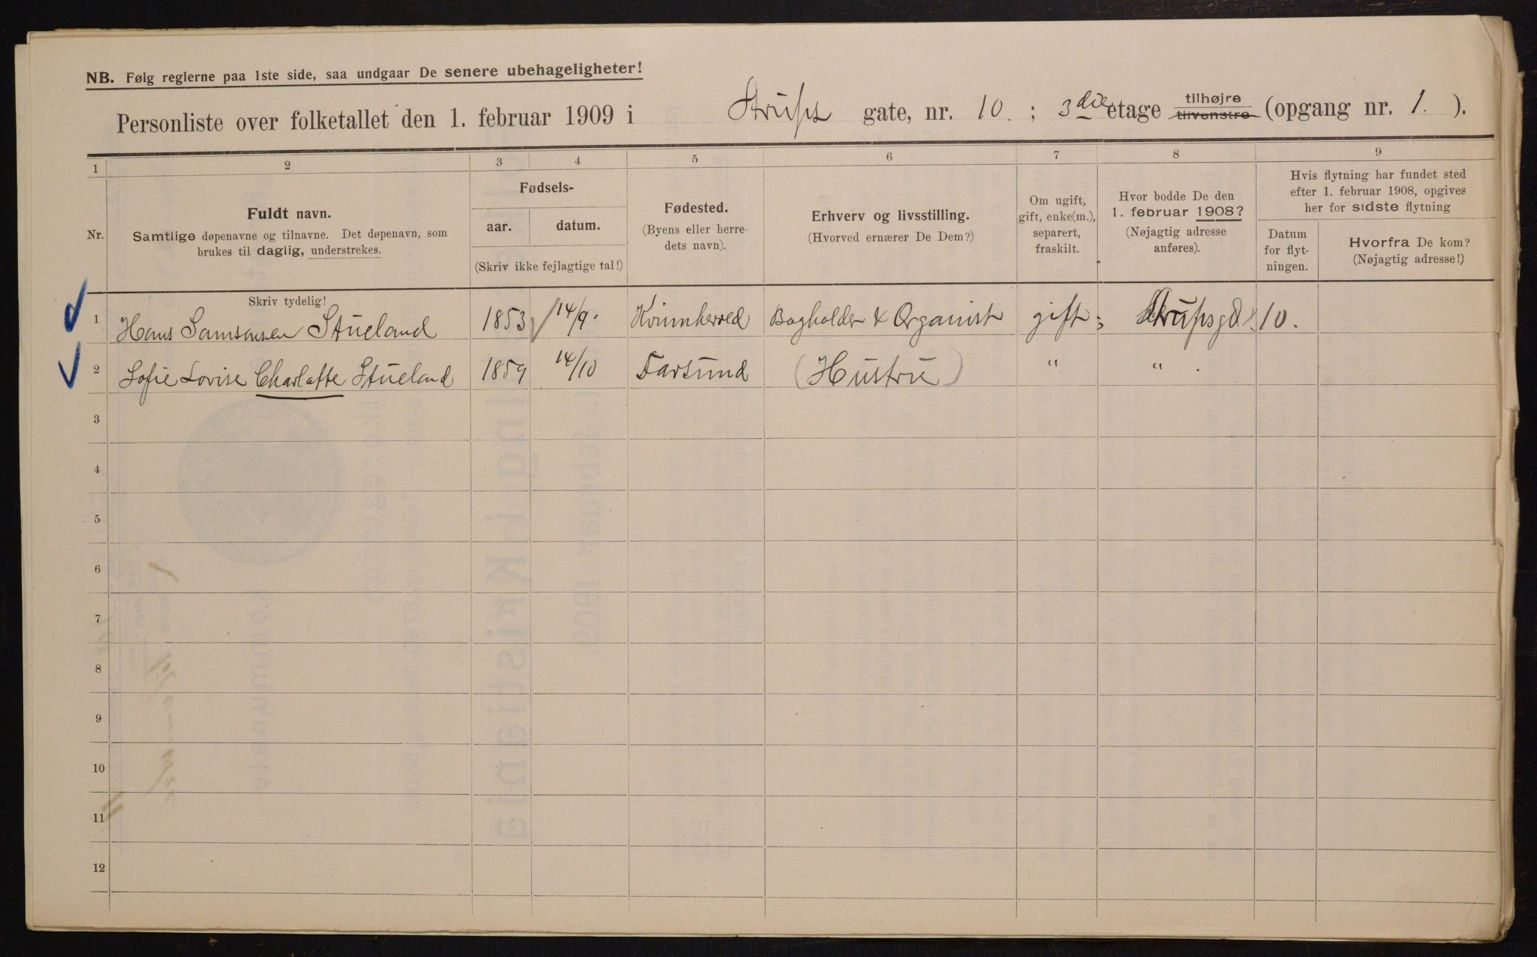 NB. Følg reglerne paa 1ste side, saa undgaar De senere ubehageligheter!
Personliste over folketallet den 1. februar 1909 i Strups gate, nr. 10. ; 3die etage tilhøjre tilvenstre (opgang nr. 1. ).
1 2 3 4 5 6 7 8 9
Nr.
Fuldt navn.
Samtlige døpenavne og tilnavne. Det døpenavn, som
brukes til daglig, understrekes.
Fødsels-
aar. datum.
(Skriv ikke fejlagtige tal!)
Fødested.
(Byens eller herre-
dets navn).
Erhverv og livsstilling.
(Hvorved ernærer De Dem?)
Om ugift,
gift, enke(m.),
separert,
fraskilt.
Hvor bodde De den
1. februar 1908?
(Nøjagtig adresse
anføres).
Hvis flytning har fundet sted
efter 1. februar 1908, opgives
her for sidste flytning
Datum
for flyt-
ningen.
Hvorfra De kom?
(Nøjagtig adresse!)
Skriv tydelig!
1 Hans Samsonsen Stueland 1853 14/9. Kvinnherred Bogholder & Organist gift Strupsgd. 10.
2 Sofie Lovise Charlotte Stueland 1859 14/10 Farsund (Hustru) " "
3
4
5
6
7
8
9
10
11
12